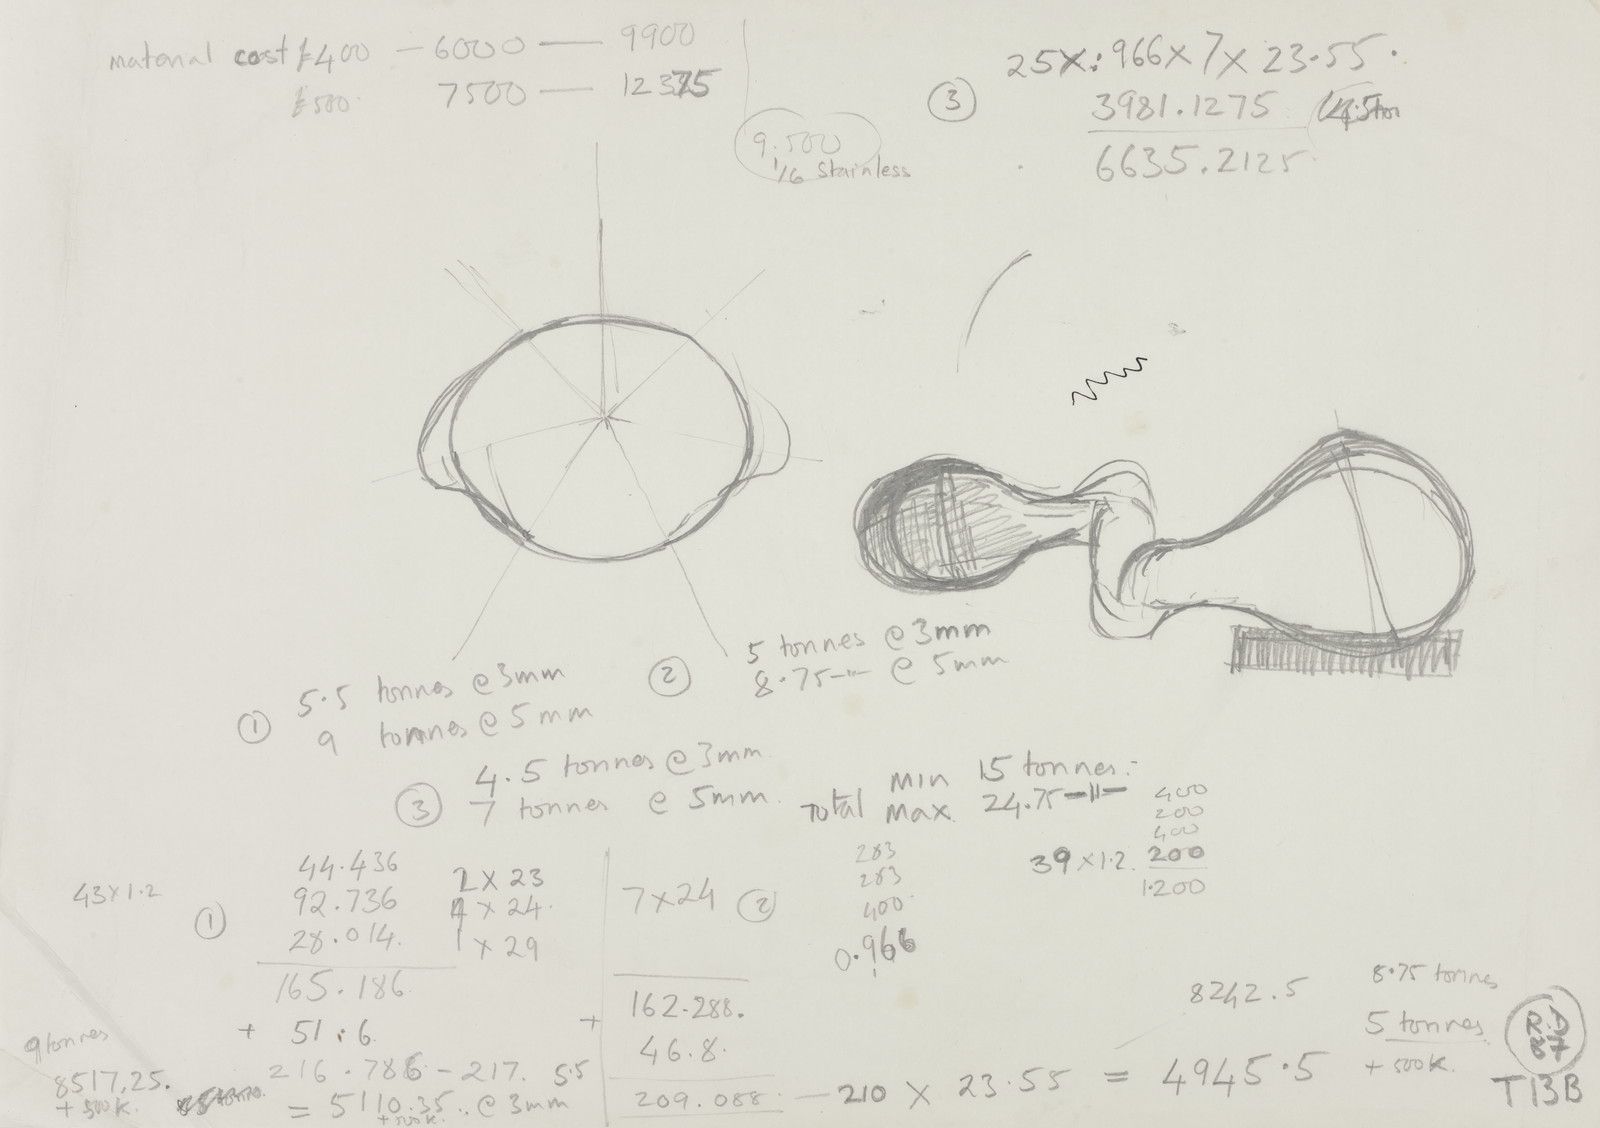 material cost £400 — 6000 — 9900
£500 7500 — 12375
9.500
1/6 Stainless
25x .966 x 7 x 23.55
③ 3981.1275 4.5ton
6635.2125
① 5.5 tonnes @ 3mm
9 tonnes @ 5mm
② 5 tonnes @ 3mm
8.75 —"— @ 5mm
③ 4.5 tonnes @ 3mm
7 tonnes @ 5mm.
Total Min 15 tonnes:-
Max 24.75 —"—
400
200
400
39 x 1.2. 200
1.200
283
283
400
0.966
43 x 1.2
①
44.436 2 x 23
92.736 4 x 24.
28.014. 1 x 29
165.186
+ 51.6
216.786 - 217. 5.5
= 5110.35 .. @ 3mm
+500k.
9 tonnes
8517.25.
+ 500k.
7 x 24 ②
162.288.
+ 46.8.
209.088 — 210 x 23.55 = 4945.5
8242.5
8.75 tonnes
5 tonnes
+ 500k.
T13B